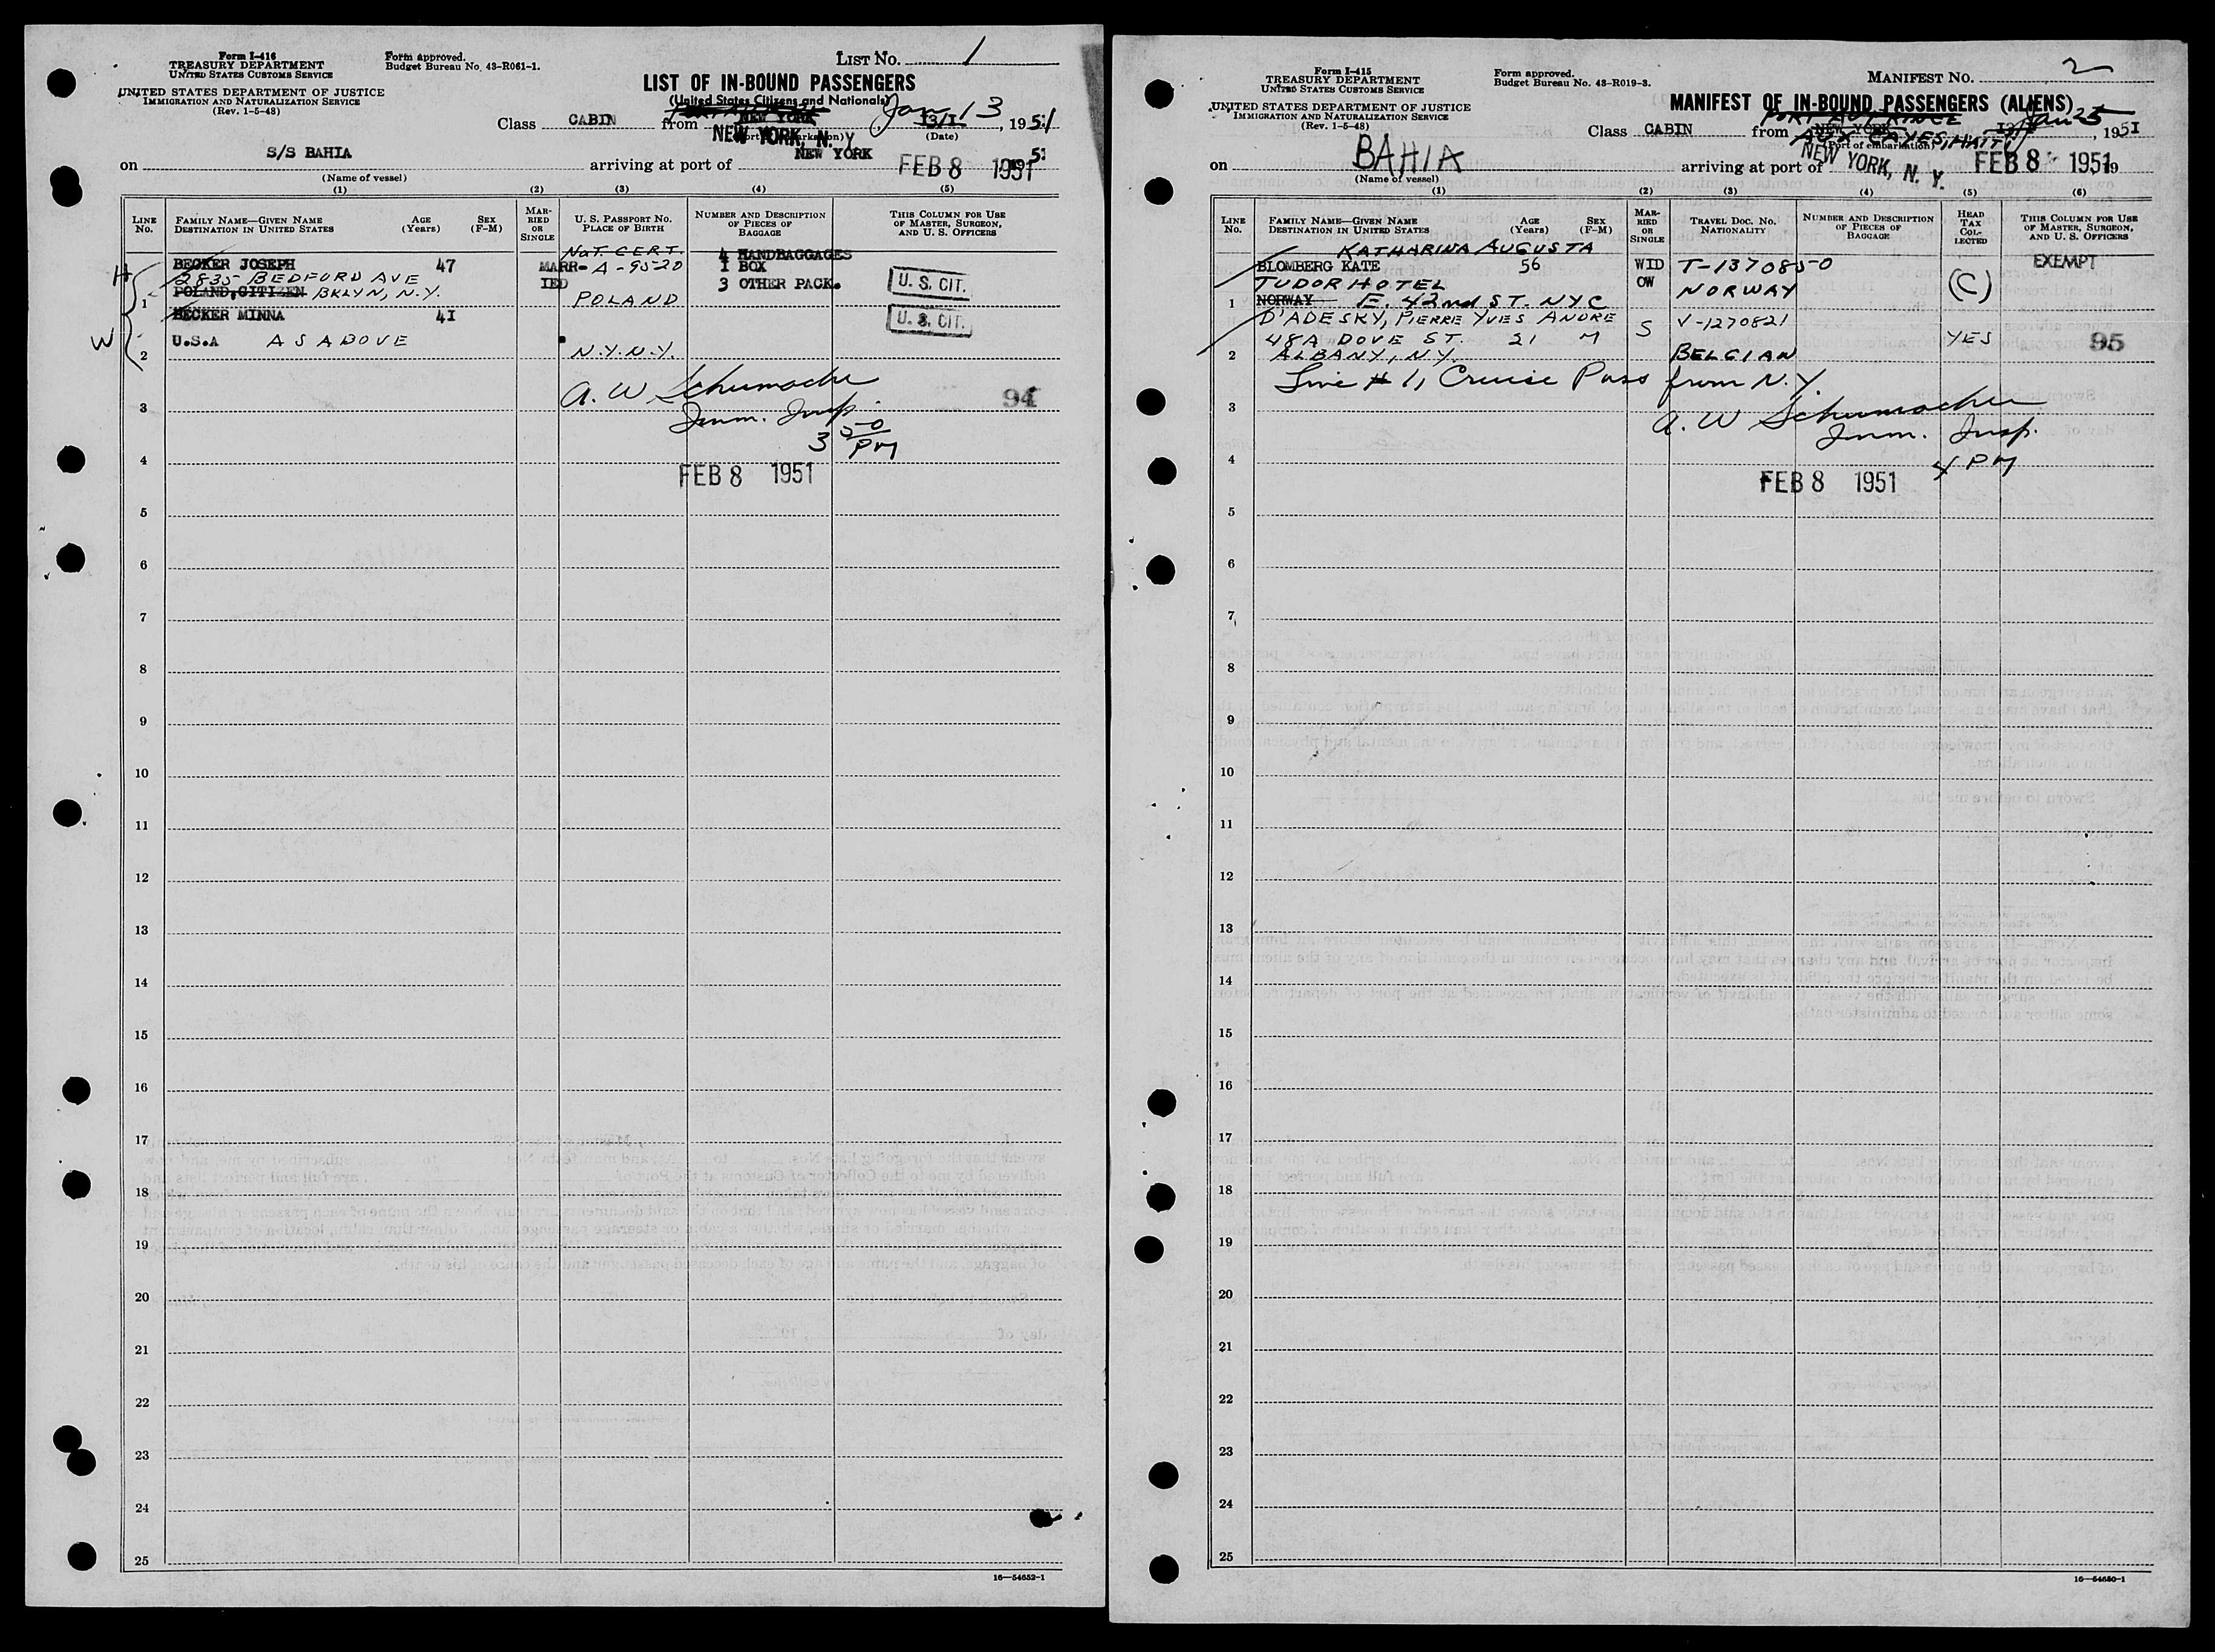 Form I-416
TREASURY DEPARTMENT
UNITED STATES CUSTOMS SERVICE
UNITED STATES DEPARTMENT OF JUSTICE
IMMIGRATION AND NATURALIZATION SERVICE
(Rev. 1-5-48)
Form approved.
Budget Bureau No. 43-R061-1.
LIST No. 1
LIST OF IN-BOUND PASSENGERS
(United States Citizens and Nationals)
Class CABIN from NEW YORK 13/I Jan 13, 1951
NEW YORK, N. Y.
(Port of embarkation) (Date)
on S/S BAHIA arriving at port of NEW YORK FEB 8 1951
(Name of vessel)
(1) (2) (3) (4) (5)
LINE No.
FAMILY NAME—GIVEN NAME
DESTINATION IN UNITED STATES
AGE (Years)
SEX (F-M)
MARRIED OR SINGLE
U. S. PASSPORT NO.
PLACE OF BIRTH
NUMBER AND DESCRIPTION OF PIECES OF BAGGAGE
THIS COLUMN FOR USE OF MASTER, SURGEON, AND U. S. OFFICERS
NAT. CERT.
H BECKER JOSEPH 47 MARR- A-9520 4 HANDBAGGAGES
2835 BEDFORD AVE IED 1 BOX
1 POLAND, CITIZEN BKLYN, N.Y. POLAND 3 OTHER PACK. U. S. CIT.
BECKER MINNA 41 U. S. CIT.
W U.S.A AS ABOVE
2 N.Y.N.Y.
A. W. Schumacher
3 94
Imm. Insp.
3 50 PM
4
FEB 8 1951
5
6
7
8
9
10
11
12
13
14
15
16
17
18
19
20
21
22
23
24
25
16—54652-1
Form I-415
TREASURY DEPARTMENT
UNITED STATES CUSTOMS SERVICE
UNITED STATES DEPARTMENT OF JUSTICE
IMMIGRATION AND NATURALIZATION SERVICE
(Rev. 1-5-48)
Form approved.
Budget Bureau No. 43-R019-3.
MANIFEST No. 2
MANIFEST OF IN-BOUND PASSENGERS (ALIENS)
PORT AU PRINCE
Class CABIN from NEW YORK Jan 25, 1951
AUX CAYES, HAITI
(Port of embarkation)
on BAHIA arriving at port of NEW YORK, N. Y. FEB 8 1951 19
(Name of vessel)
(1) (2) (3) (4) (5) (6)
LINE No.
FAMILY NAME—GIVEN NAME
DESTINATION IN UNITED STATES
AGE (Years)
SEX (F-M)
MARRIED OR SINGLE
TRAVEL DOC. NO.
NATIONALITY
NUMBER AND DESCRIPTION OF PIECES OF BAGGAGE
HEAD TAX COLLECTED
THIS COLUMN FOR USE OF MASTER, SURGEON, AND U. S. OFFICERS
KATHARINA AUGUSTA
BLOMBERG KATE 56 WID T-1370850 EXEMPT
TUDOR HOTEL OW NORWAY (C)
1 NORWAY E. 42nd ST. NYC
D'ADESKY, PIERRE YVES ANDRE V-1270821
48A DOVE ST. 21 M S YES 95
2 ALBANY, N.Y. BELGIAN
Line # 1, Cruise Pass from N.Y.
3 A. W Schumacher
Imm. Insp.
4 4 PM
FEB 8 1951
5
6
7
8
9
10
11
12
13
14
15
16
17
18
19
20
21
22
23
24
25
16—54650-1